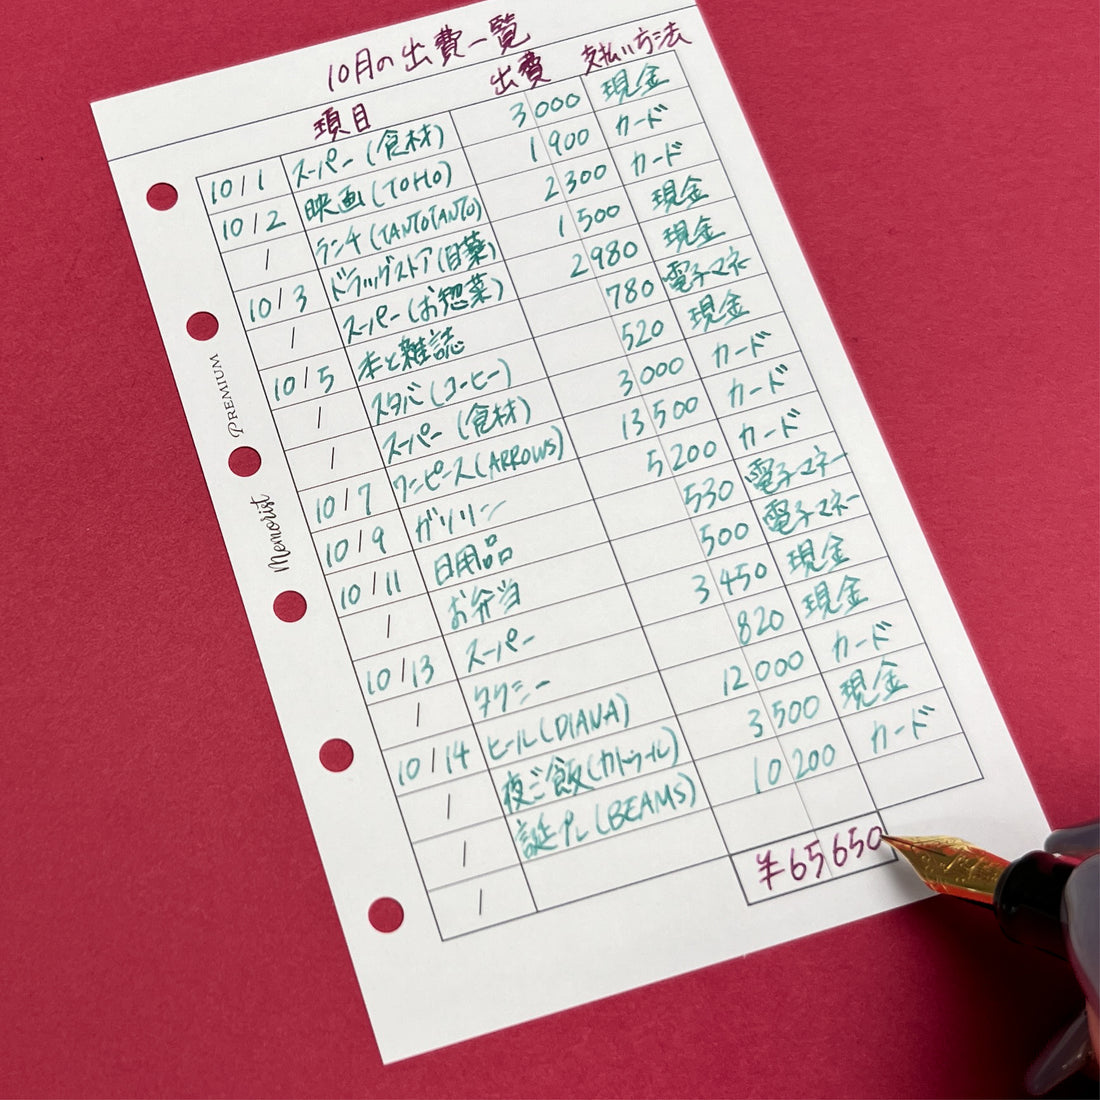 10月の出費一覧
項目 出費 支払い方法
10/1 スーパー(食材) 3000 現金
10/2 映画(TOHO) 1900 カード
/ ランチ(TANTOTANTO) 2300 カード
10/3 ドラッグストア(目薬) 1500 現金
/ スーパー(お惣菜) 2980 現金
10/5 本と雑誌 780 電子マネー
/ スタバ(コーヒー) 520 現金
/ スーパー(食材) 3000 カード
10/7 ワンピース(ARROWS) 13500 カード
10/9 ガソリン 5200 カード
10/11 日用品 530 電子マネー
/ お弁当 500 電子マネー
10/13 スーパー 3450 現金
/ タクシー 820 現金
10/14 ヒール(DIANA) 12000 カード
/ 夜ご飯(カトラール) 3500 現金
/ 誕プレ(BEAMS) 10200 カード
/
¥65650
Memorist PREMIUM